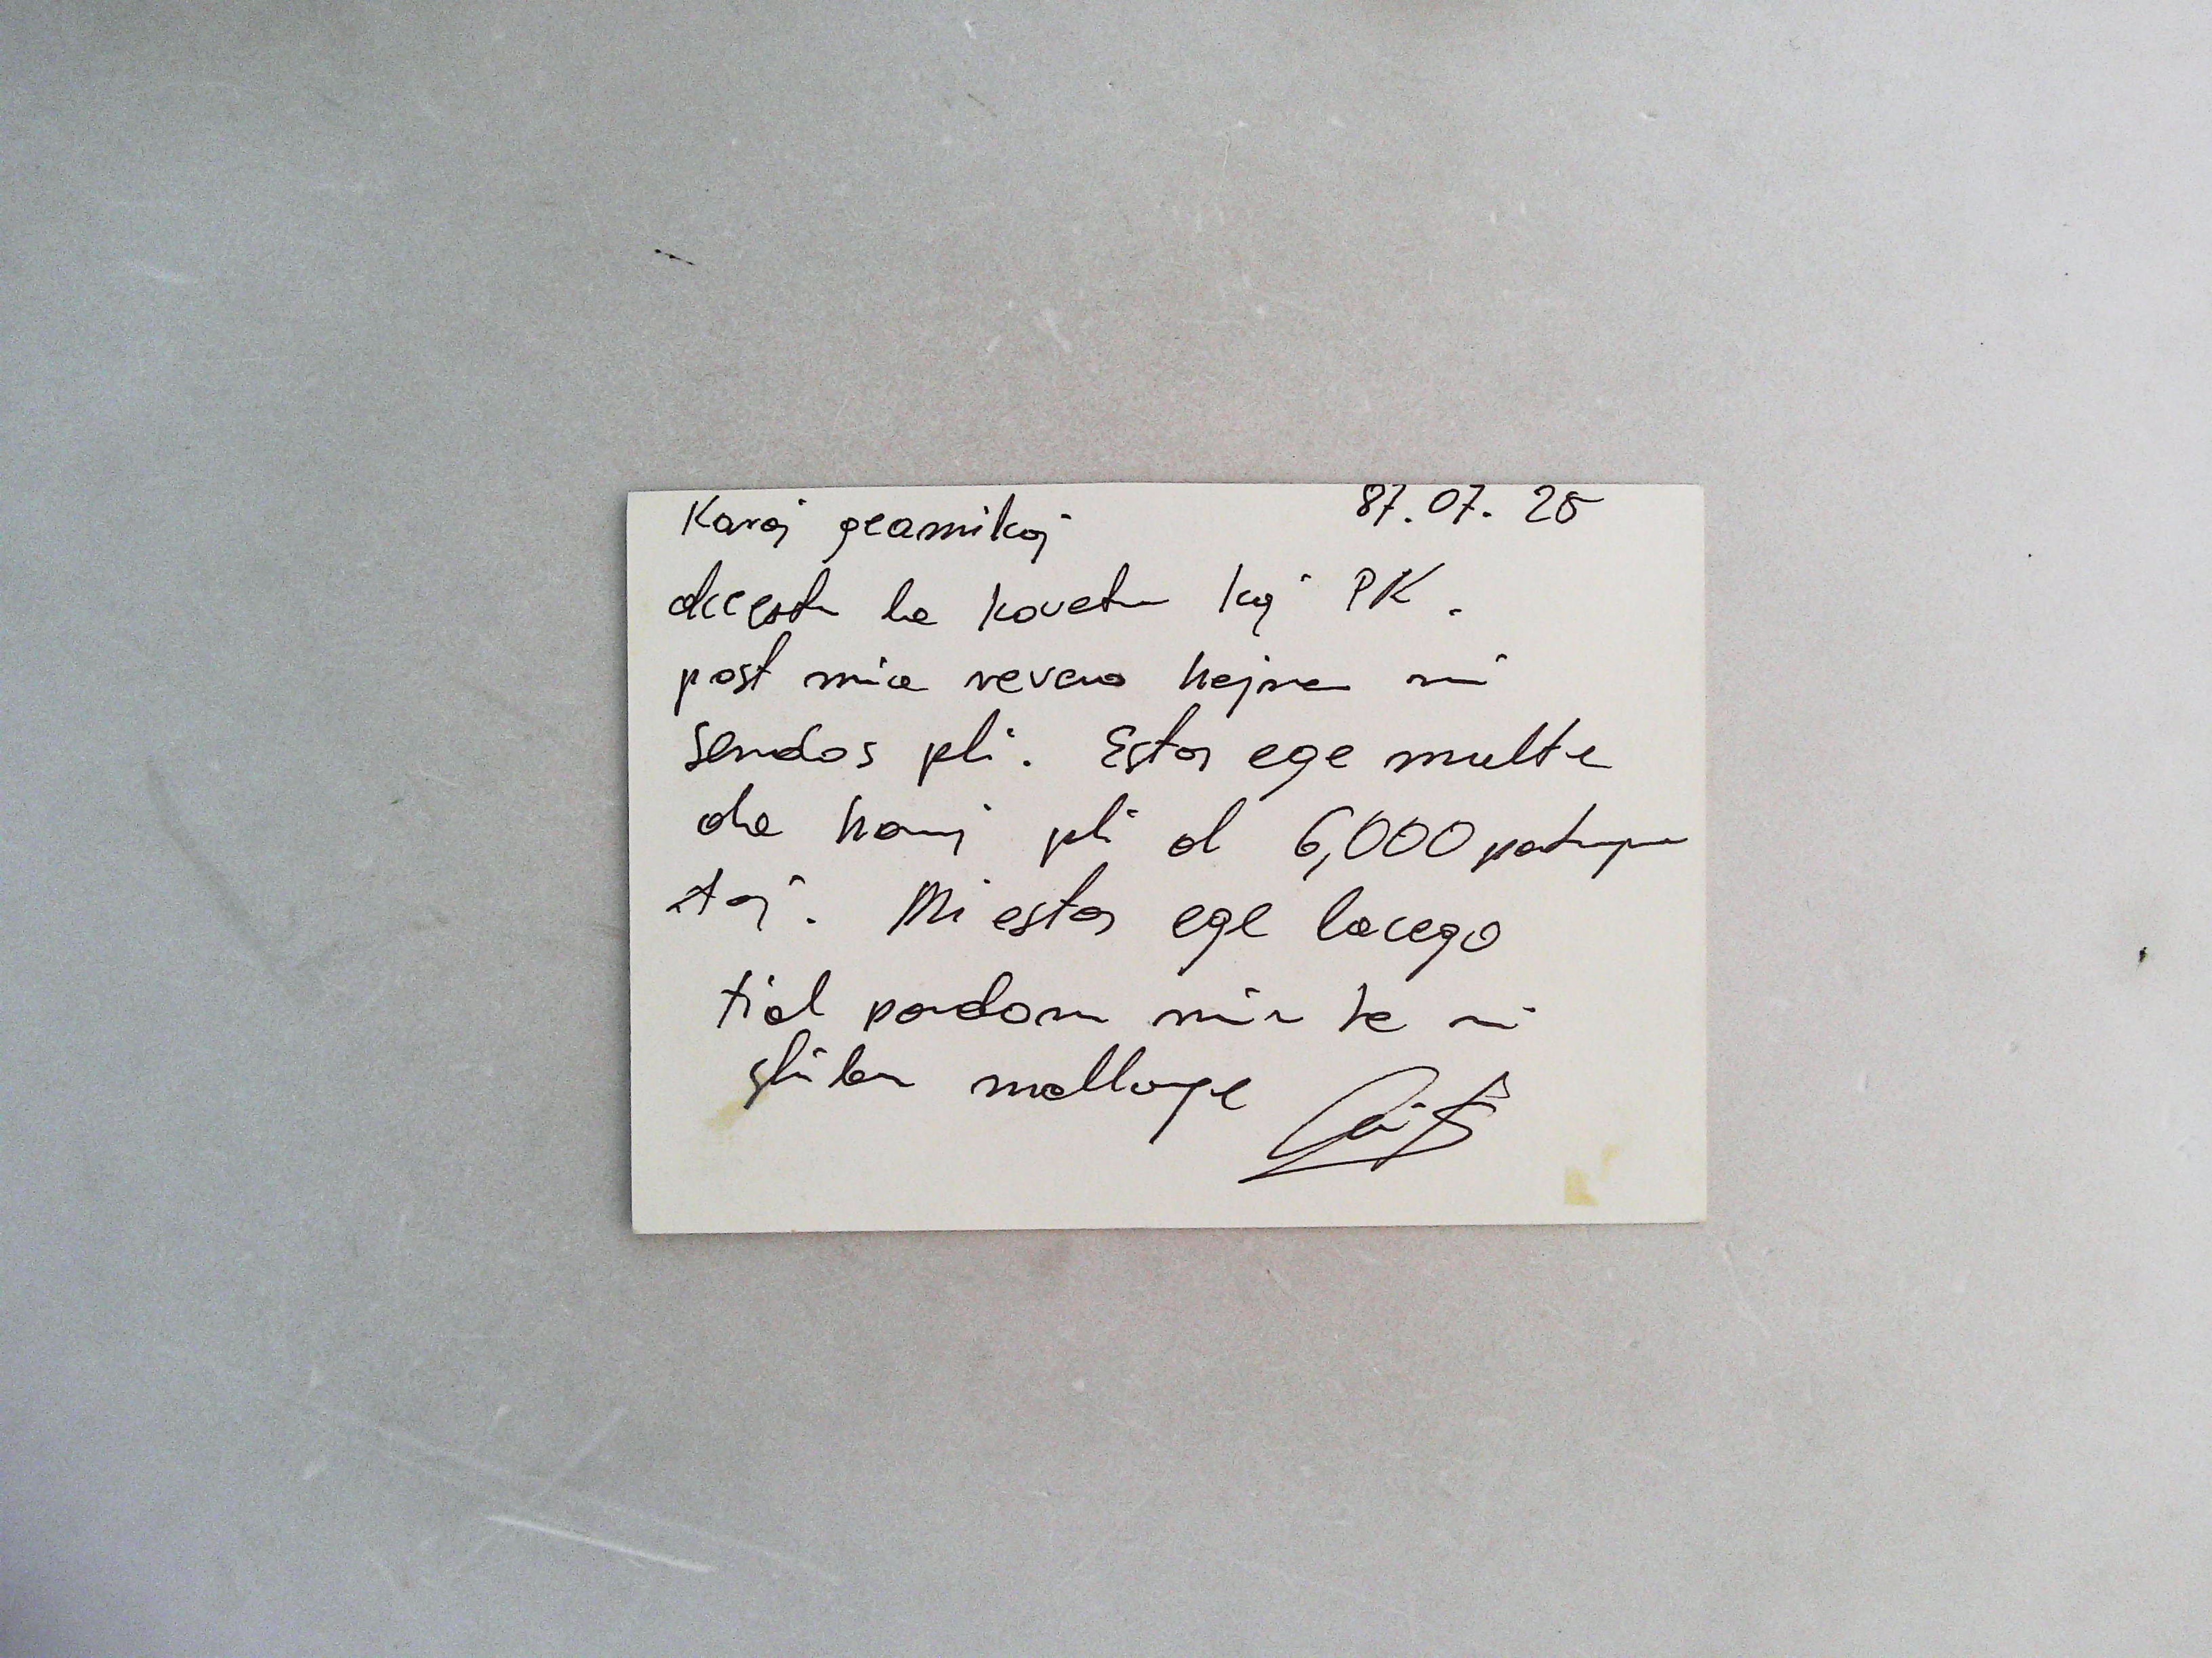 Karaj geamikoj 87.07.28
Accepta la kovetn kaj PK.
post mia reveno hejmen mi
sendos pli. Estas ege multe
da homj pli ol 6,000 partopren
toj. Mi estas ege lacega
tial pardonu min ke mi
skribas mallonge